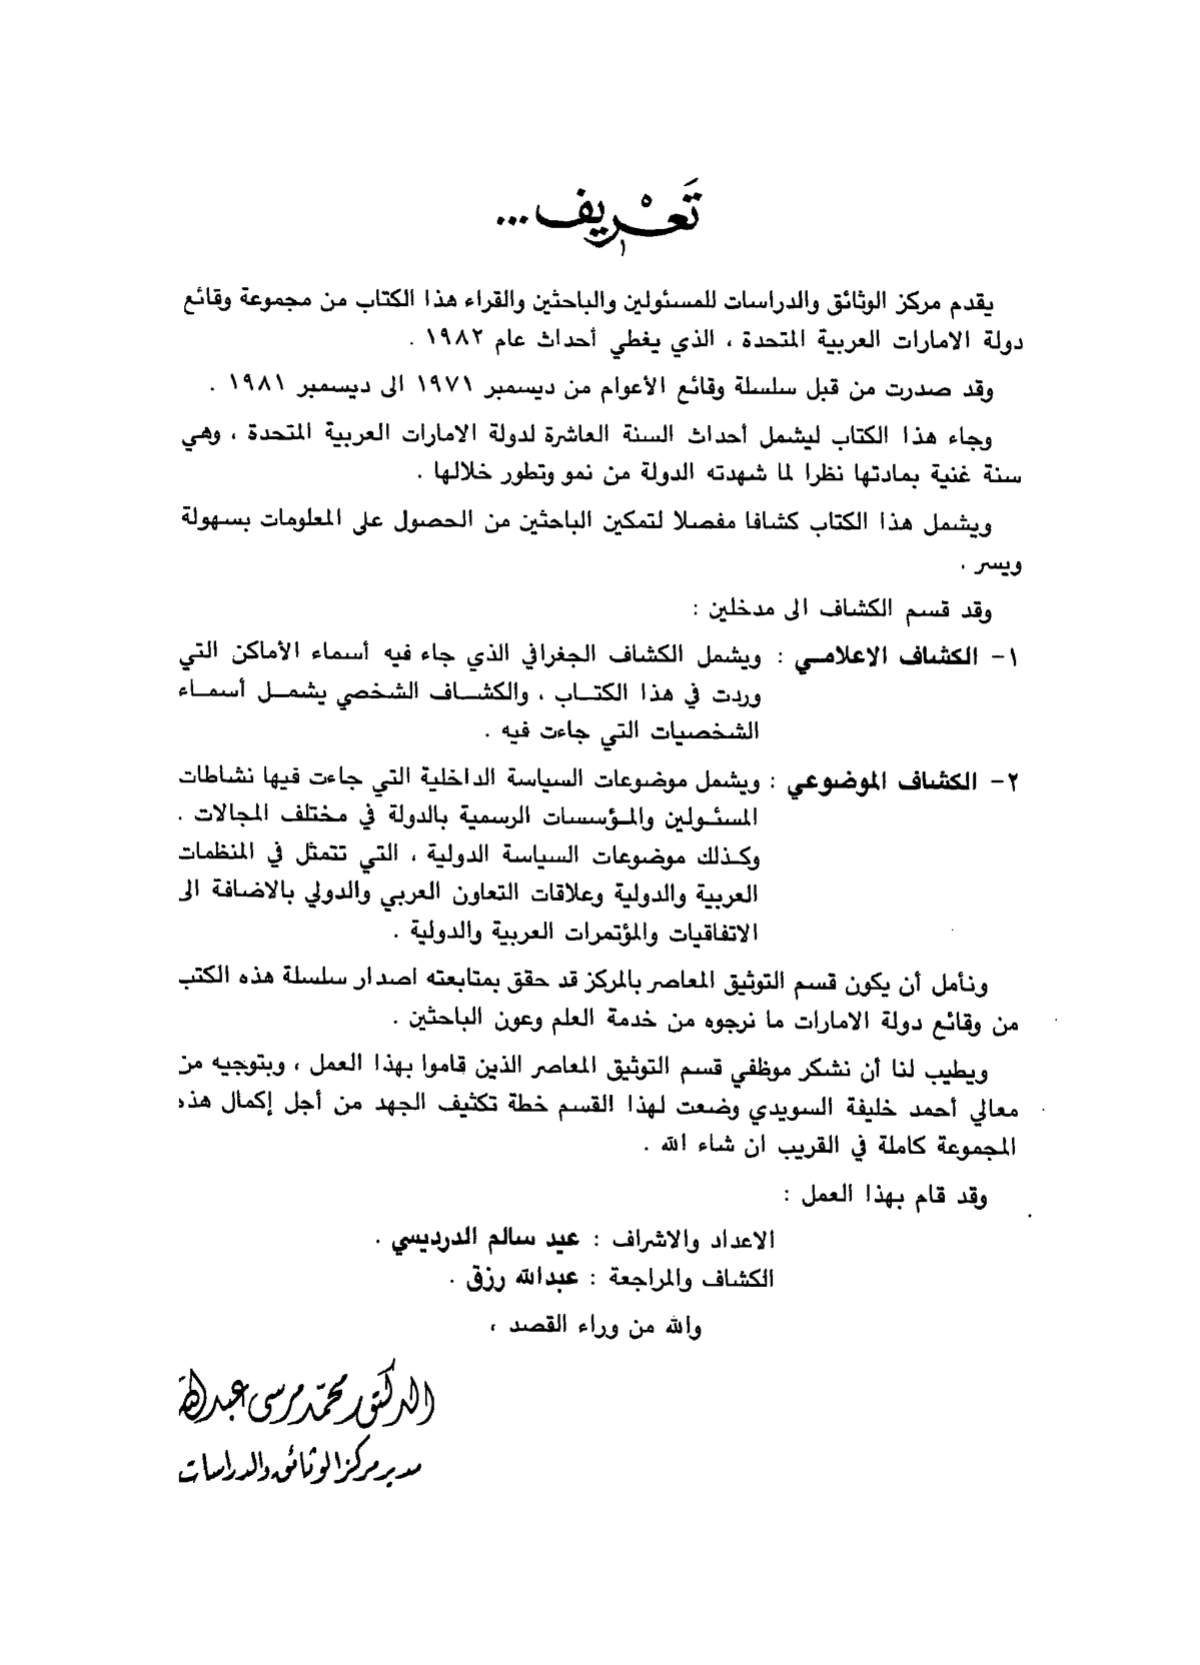 تَعْريف...
يقدم مركز الوثائق والدراسات للمسئولين والباحثين والقراء هذا الكتاب من مجموعة وقائع
دولة الامارات العربية المتحدة ، الذي يغطي أحداث عام ١٩٨٢ .
وقد صدرت من قبل سلسلة وقائع الأعوام من ديسمبر ١٩٧١ الى ديسمبر ١٩٨١ .
وجاء هذا الكتاب ليشمل أحداث السنة العاشرة لدولة الامارات العربية المتحدة ، وهي
سنة غنية بمادتها نظرا لما شهدته الدولة من نمو وتطور خلالها .
ويشمل هذا الكتاب كشافا مفصلا لتمكين الباحثين من الحصول على المعلومات بسهولة
ويسر .
وقد قسم الكشاف الى مدخلين :
١- الكشاف الاعلامي : ويشمل الكشاف الجغرافي الذي جاء فيه أسماء الأماكن التي
وردت في هذا الكتاب ، والكشاف الشخصي يشمل أسماء
الشخصيات التي جاءت فيه .
٢- الكشاف الموضوعي : ويشمل موضوعات السياسة الداخلية التي جاءت فيها نشاطات
المسئولين والمؤسسات الرسمية بالدولة في مختلف المجالات .
وكذلك موضوعات السياسة الدولية ، التي تتمثل في المنظمات
العربية والدولية وعلاقات التعاون العربي والدولي بالاضافة الى
الاتفاقيات والمؤتمرات العربية والدولية .
ونأمل أن يكون قسم التوثيق المعاصر بالمركز قد حقق بمتابعته اصدار سلسلة هذه الكتب
من وقائع دولة الامارات ما نرجوه من خدمة العلم وعون الباحثين .
ويطيب لنا أن نشكر موظفي قسم التوثيق المعاصر الذين قاموا بهذا العمل ، وبتوجيه من
معالي أحمد خليفة السويدي وضعت لهذا القسم خطة تكثيف الجهد من أجل إكمال هذه
المجموعة كاملة في القريب ان شاء الله .
وقد قام بهذا العمل :
الاعداد والاشراف : عيد سالم الدرديسي .
الكشاف والمراجعة : عبدالله رزق .
والله من وراء القصد ،
الدكتور محمّد مرسى عبدالله
مدير مركز الوثائق والدراسات